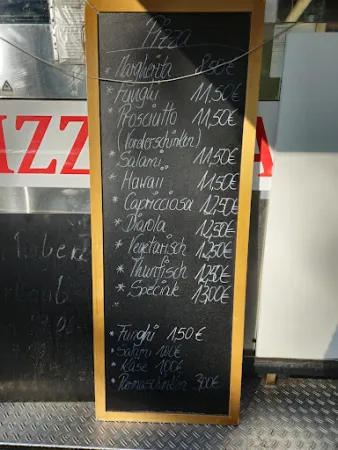 Pizza
* Margherita 8,50€
* Funghi 11,50€
* Prosciutto 11,50€
(Vorderschinken)
* Salami 11,50€
* Hawaii 11,50€
* Capricciosa 12,50€
* Diavola 12,50€
* Vegetarisch 12,50€
* Thunfisch 12,50€
* Speciale 13,00€
* Funghi 1,50€
* Salami 1,00€
* Käse 1,00€
* Parmaschinken 3,00€
IZZ
A